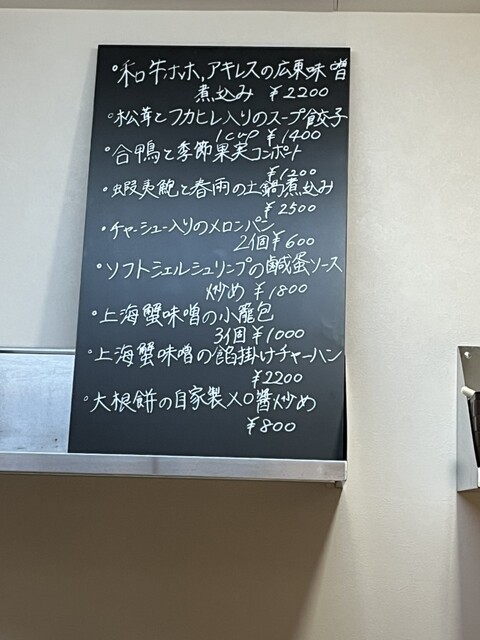 •和牛ホホ,アキレスの広東味噌
煮込み ¥2200
•松茸とフカヒレ入りのスープ餃子
1cup ¥1400
•合鴨と季節果実コンポート
¥1200
•蝦夷鮑と春雨の土鍋煮込み
¥2500
•チャーシュー入りのメロンパン
2個¥600
•ソフトシェルシュリンプの鹹蛋ソース
炒め ¥1800
•上海蟹味噌の小籠包
3個¥1000
•上海蟹味噌の餡掛けチャーハン
¥2200
•大根餅の自家製XO醬炒め
¥800